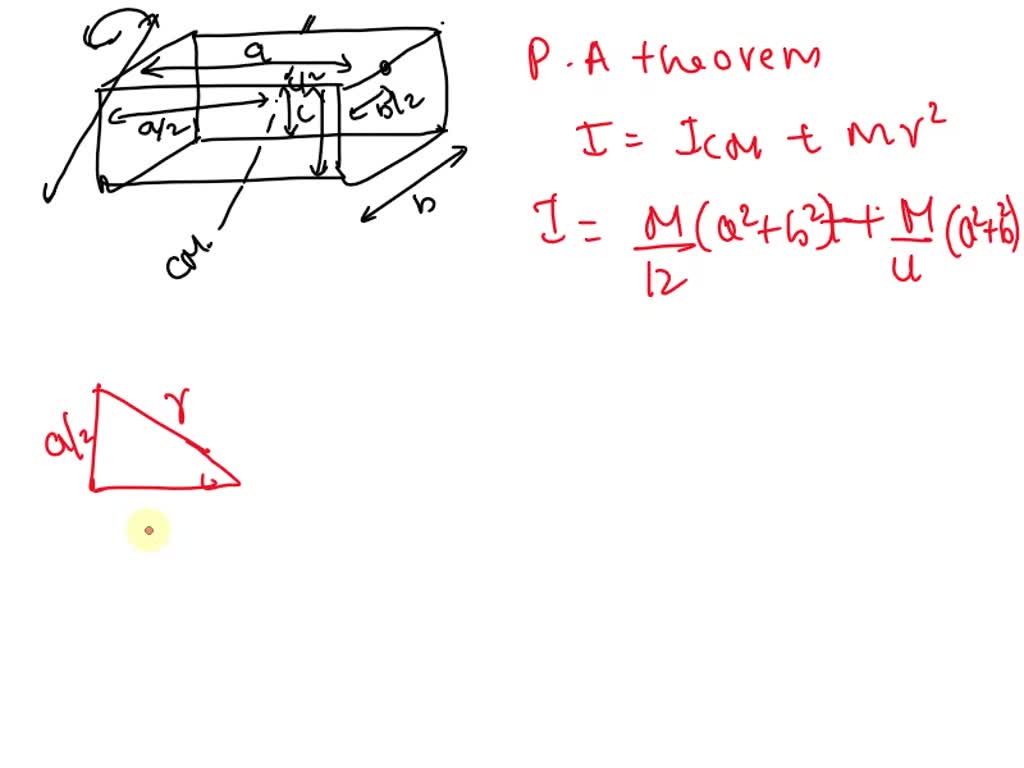 a
c/2
a/2
c
B/2
b
CM.
P.A theorem
I = ICM + Mr²
I = M/12 (a²+b²) + M/4 (a²+b²)
a/2
r